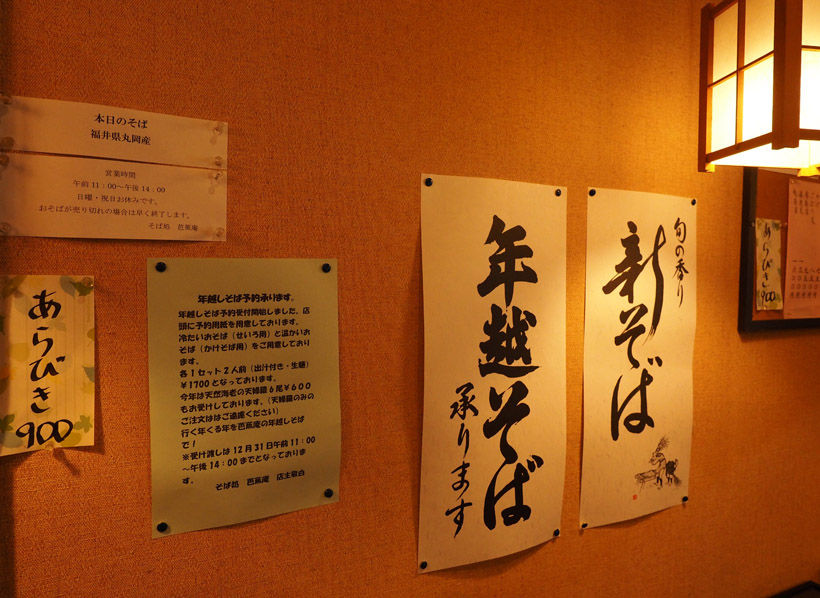 本日のそば
福井県丸岡産
営業時間
午前11:00～午後14:00
日曜・祝日お休みです。
おそばが売り切れの場合は早く終了します。
そば処 芭蕉庵
あらびき
900
年越しそば予約承ります。
年越しそば予約受付開始しました。店
頭に予約用紙を用意しております。
冷たいおそば（せいろ用）と温かいお
そば（かけそば用）をご用意しており
ます。
各1セット2人前（出汁付き・生麺）
¥1700となっております。
今年は天然海老の天婦羅6尾¥600
もお受けしております。（天婦羅のみの
ご注文はご遠慮ください）
行く年くる年を芭蕉庵の年越しそば
で！
※受け渡しは12月31日午前11:00
～午後14:00までとなっておりま
す。
そば処 芭蕉庵 店主敬白
年越そば
承ります
旬の香り
新そば
あらびき
900